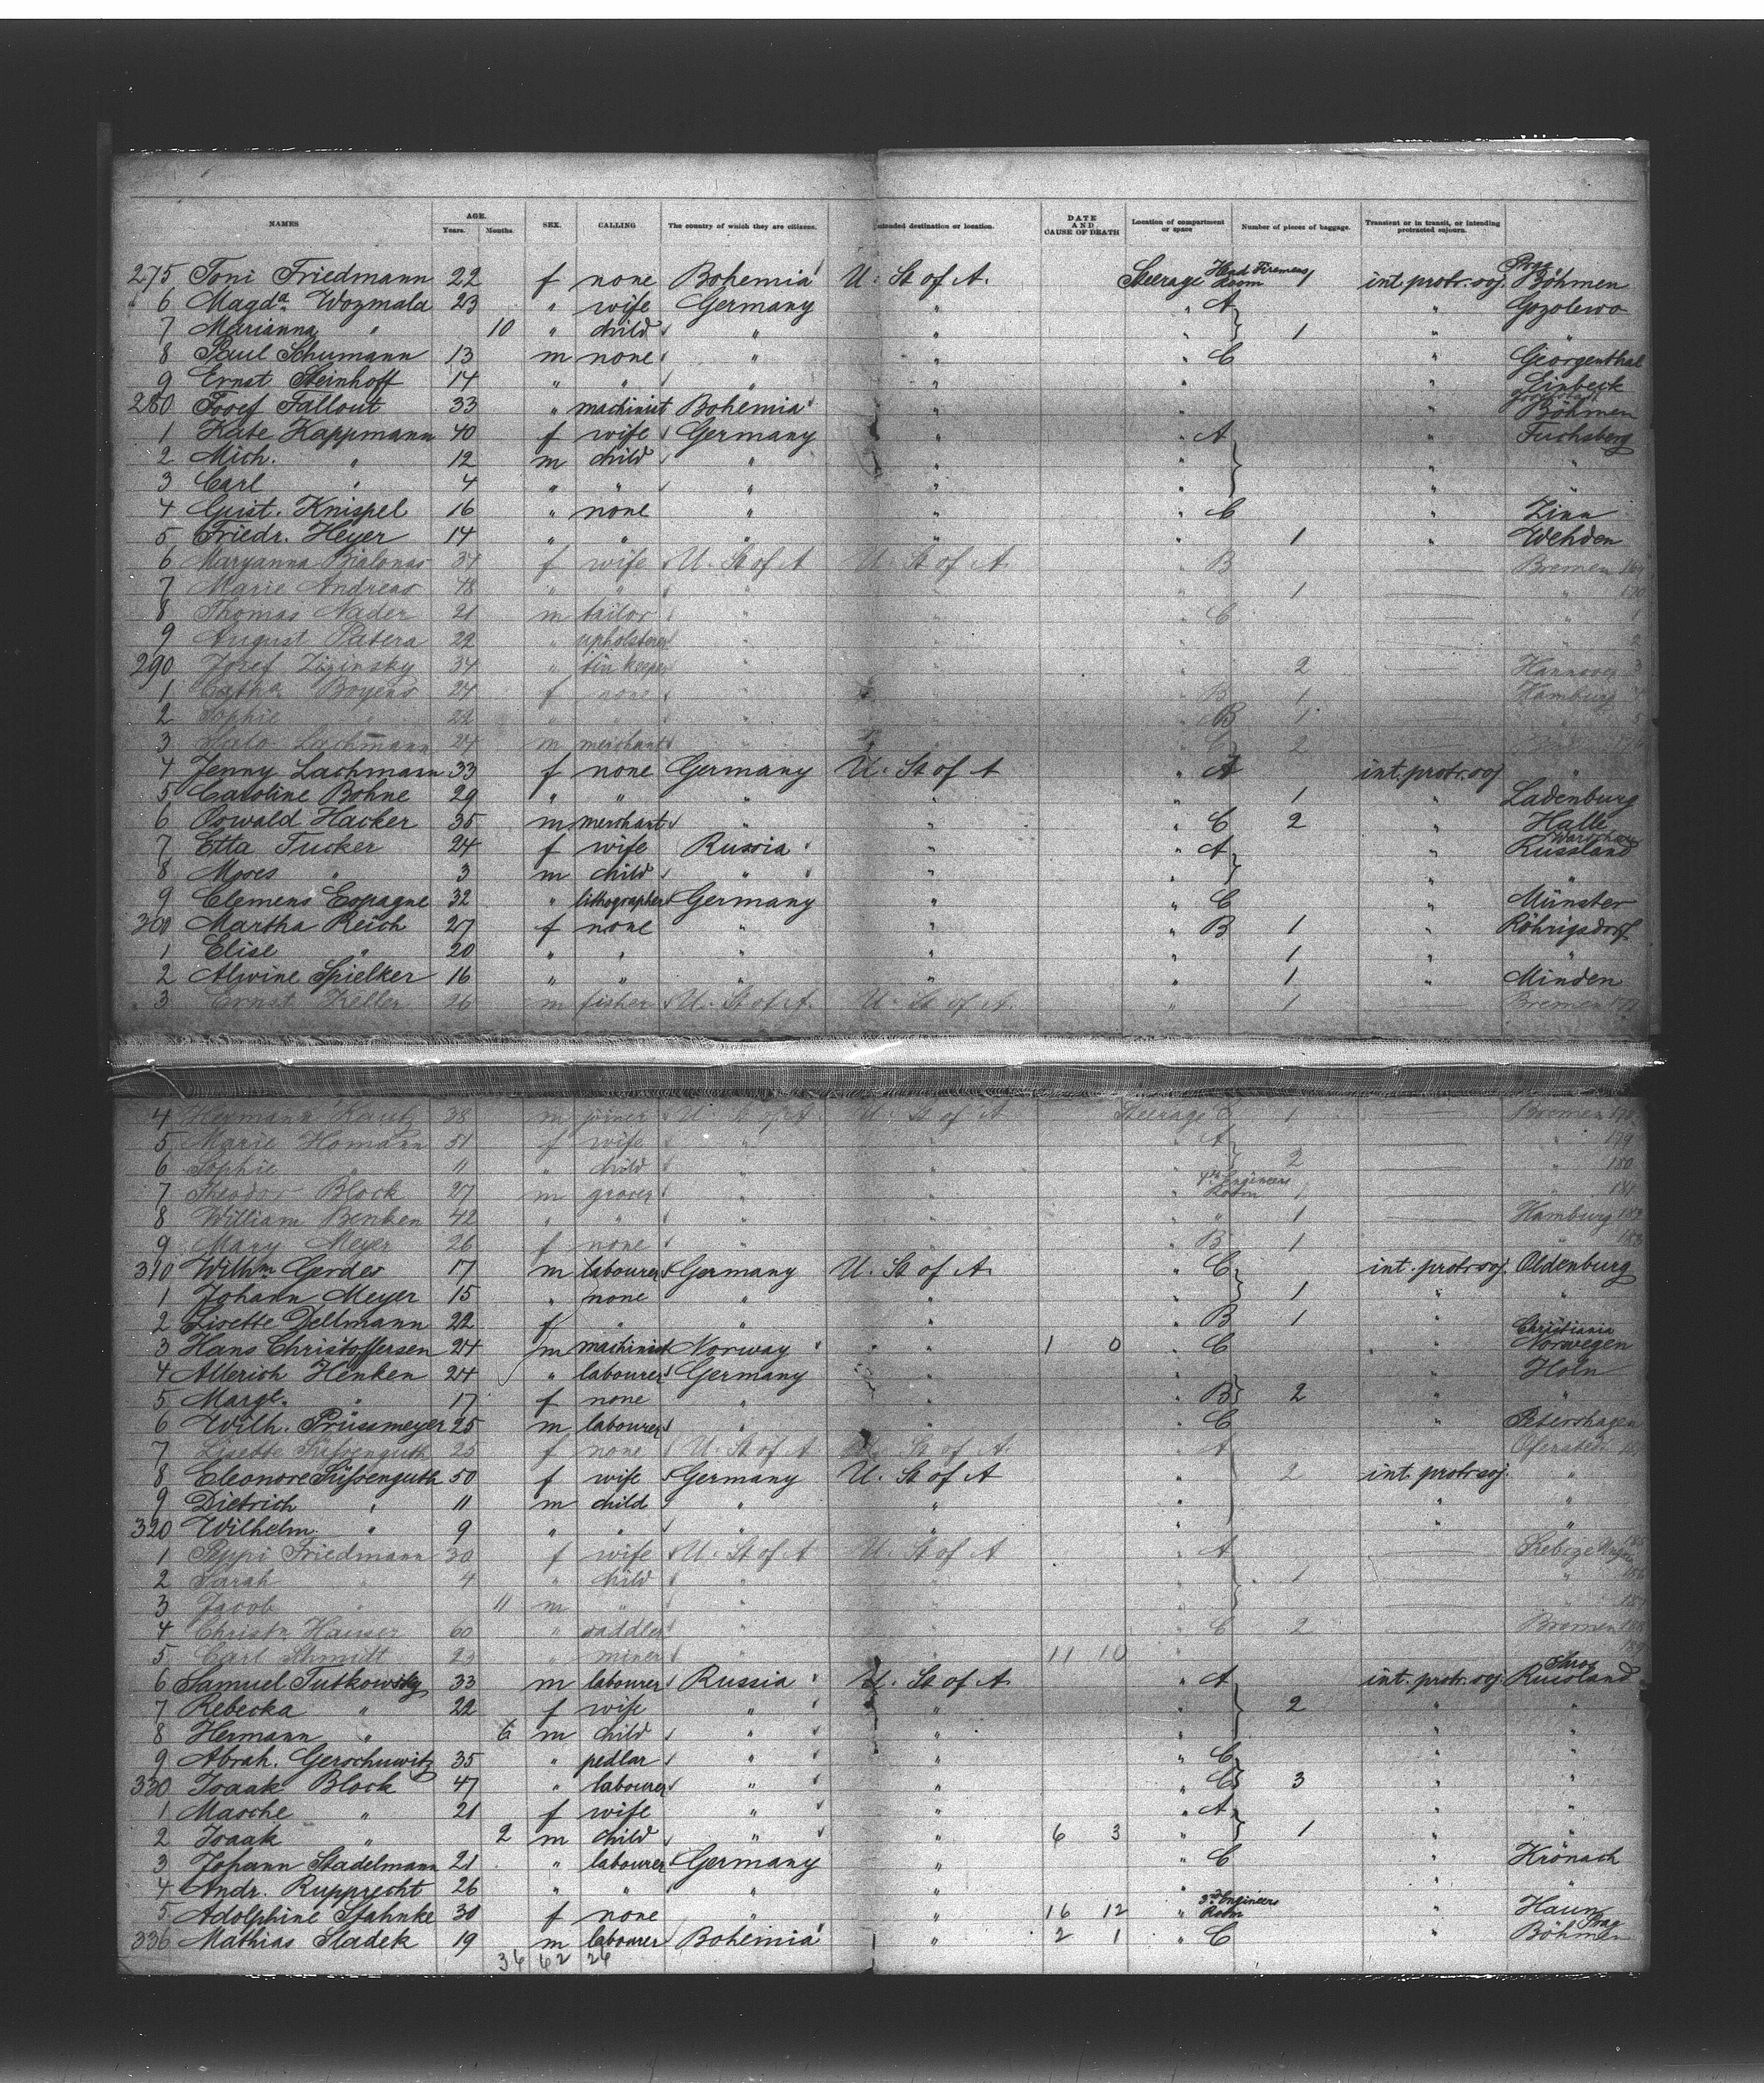 NAMES AGE. Years. Months. SEX. CALLING The country of which they are citizens. Intended destination or location. DATE AND CAUSE OF DEATH Location of compartment or space Number of pieces of baggage. Transient or in transit, or intending protracted sojourn.
275 Toni Friedmann 22 f none Bohemia U. St of A. Steerage Head Firemens Room 1 int. protr. soj. Prag Böhmen
6 Magda Wozmala 23 " wife Germany " " A " Gozolewo
7 Marianna " 10 " child " " 1 " "
8 Paul Schumann 13 m none " " " C " Georgenthal
9 Ernst Steinhoff 14 " " " " " " Einbeck
280 Josef Fallout 33 " machinist Bohemia " " Böhmen
1 Kate Kappmann 40 f wife Germany " " A " Fuchsberg
2 Mich. " 12 m child " " " " "
3 Carl " 4 " " " " " " "
4 Gust. Knispel 16 " none " " " C " Zinn
5 Friedr. Heyer 14 " " " " " 1 " Wehden
6 Maryanna Bialonas 34 f wife U. St of A U. St of A. " B Bremen 169
7 Marie Andreas 48 " " " " 1 " 170
8 Thomas Nader 21 m tailor " " " C " 1
9 August Patera 29 " upholsterer " " " 2
290 Josef Zizinsky 34 " tin keeper " " 2 Hannover 3
1 Catha Boyens 24 f none " " " B 1 Hamburg
2 Sophie " 22 " " " " " B 1 " 5
3 Salo Lachmann 27 m merchant " " " C 2
4 Jenny Lachmann 33 f none Germany U. St of A " A int. protr. soj "
5 Caroline Bohne 29 " " " " " 1 " Ladenburg
6 Oswald Hacker 35 m merchant " " " C 2 " Halle
7 Etta Tucker 24 f wife Russia " " A " Warschau Russland
8 Moses " 3 m child " " " " "
9 Clemens Espagne 32 " lithographer Germany " " C " Münster
300 Martha Reich 27 f none " " " B 1 " Röhrigsdorf
1 Elise " 20 " " " " " 1 " "
2 Alwine Spielker 16 " " " " " 1 " Minden
3 Ernst Keller 26 m fisher U. St of A. U. St of A. " 1 Bremen 177
4 Hermann 38 m joiner U. St of A U. St of A Steerage C 1 Bremen 178
5 Marie Homann 51 f wife " " " A " 179
6 Sophie " 11 " child " " " 2 " 180
7 Theodor Block 27 m grocer " " 4th Engineers Room 1 " 181
8 William Benken 42 " " " " " 1 Hamburg 182
9 Mary Meyer 26 f none " " " B 1 " 183
310 Wilhm Gerdes 17 m labourer Germany U. St of A. " C int. protr soj. Oldenburg
1 Johann Meyer 15 " none " " " 1 " "
2 Lisette Dellmann 22 f " " " " B 1
3 Hans Christoffersen 24 m machinist Norway " 1 0 " C " Christiania Norwegen
4 Allerich Henken 24 " labourer Germany " " " Holn
5 Margt. " 17 f none " " " B 2 " "
6 Wilh. Prüssmeyer 25 m labourer " " " C " Petershagen
7 Lisette Süssenguth 25 f none U. St of A U. St of A. " A
8 Eleonore Süssenguth 50 f wife Germany U. St of A " 2 int. protr soj. "
9 Dietrich " 11 m child " " " " "
320 Wilhelm " 9 " " " " " "
1 Peppi Friedmann 30 f wife U. St of A U. St of A " A 185
2 Sarah " 4 " child " " " 1 " 186
3 Jacob " 11 m " " " " " 187
4 Christn Hauser 60 " saddler " " " C 2 Bremen 188
5 Carl Schmidt 29 " miner " " 11 10 " 189
6 Samuel Tutkowsky 33 m labourer Russia U. St of A " A int. protr. soj. Russland
7 Rebecka " 22 f wife " " " 2 " "
8 Hermann " 6 m child " " " " "
9 Abrah. Gerschuwitz 35 " pedlar " " " C " "
330 Isaak Block 47 " labourer " " " C 3 " "
1 Masche " 21 f wife " " " A " "
2 Isaak " 2 m child " " 6 3 " 1 " "
3 Johann Stadelmann 21 " labourer Germany " " C " Krönach
4 Andr. Rupprecht 26 " " " " " " "
5 Adolphine Stahnke 30 f none " " 16 12 " 3rd Engineers Room " Haun
336 Mathias Sladek 19 m labourer Bohemia " 2 1 " C " Prag Böhmen
36 62 26